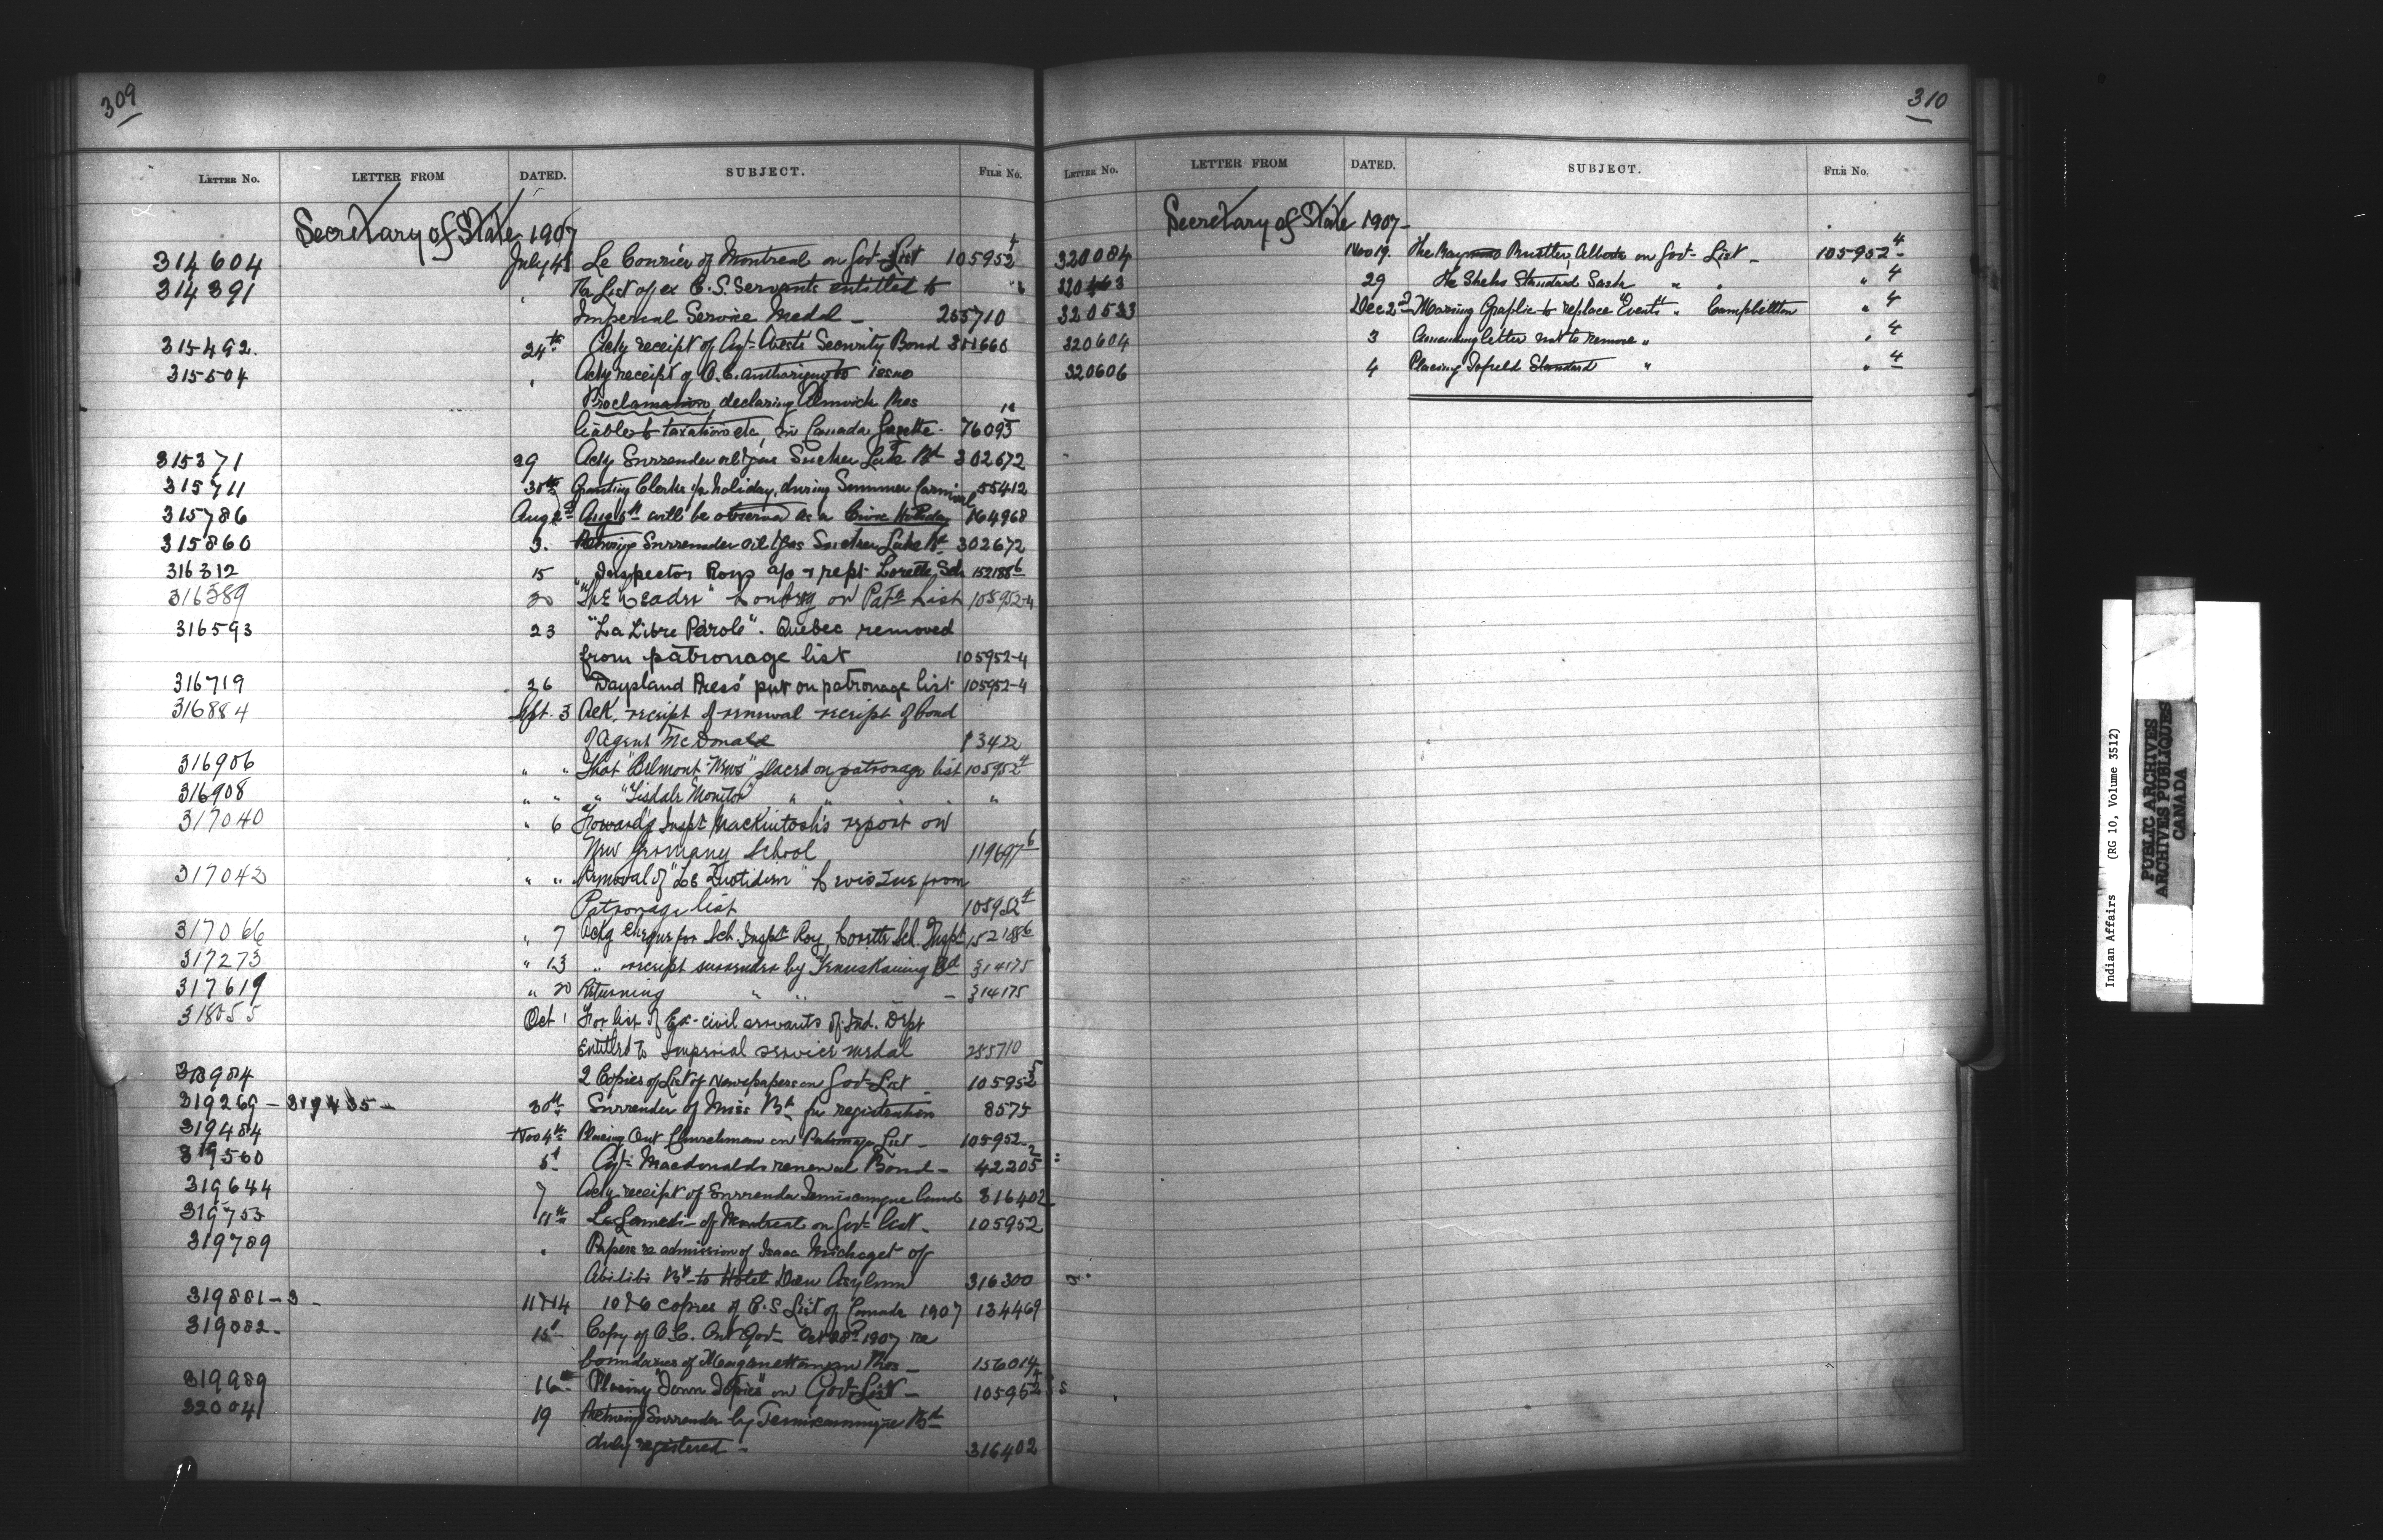 309
LETTER NO. LETTER FROM DATED. SUBJECT. FILE NO.
Secretary of State 1907
314604 July 4 Le Courier of Montreal on Govt List 105952-4
314391 " Re List of ex C.S. Servants entitled to
Imperial Service Medal - 255710
315492. 24th Ackg receipt of Agt Bond Security 311660
315504 " Ackg receipt of O.C. authorizing to issue
Proclamation, declaring Alnwick Res
liable to taxation etc, in Canada Gazette. 76093
315371 29 Ackg Surrender oil & gas Sucker Lake Bd 302672
315711 30th Granting Clerks 1/2 holiday, during Summer Carnival 55412
315786 Aug 2nd Aug 5th will be observed as a Civic Holiday 164968
315860 3. Returning Surrender oil & gas Sucker Lake Bd 302672
316312 15 Inspector Roys a/c & rept Lorette Sch 152188-6
316389 20 "The Leader" on Patge List 105952-4
316593 23 "La Libre Parole". Quebec removed
from patronage list 105952-4
316719 26 "Daysland Press" put on patronage list 105952-4
316884 Sept. 3 Ack. receipt of renewal receipt of bond
of Agent McDonald 13422
316906 " " That "Belmont News" placed on patronage list 105952-4
316908 " " " "Tisdale Monitor" " " "
317040 " 6 Forwards Inspt Mackintosh's report on
New Germany School 119697-6
317042 " " Removal of "Le Quotidien" Levis Que from
Patronage list 105952-4
317066 " 7 Ackg cheque for Sch. Inspt Roy, Lorette Sch. Inspt 152188-6
317273 " 13 " receipt surrender by Temiskaming Bd 314175
317619 " 20 Returning " " - 314175
318055 Oct 1 For list of Ex-civil servants of Ind. Dept
Entitled to Imperial service medal 255710
318984 2 Copies of List of Newspapers on Govt List - 105952-5
319269 - 319435 - 30th Surrender of Miss Bd for registration 8575
319484 Nov 4th Placing Ont Churchman on Patronage List - 105952-
319560 5th Agt Macdonalds renewal Bond - 42205-2
319644 7 Ackg receipt of Surrender Temiscamingue Band 316402
319753 11th Le Samedi of Montreal on Govt List - 105952
319789 " Papers re admission of Isaac Michaget of
Abitibi Bd to Hotel Dieu Asylum 316300
319881 - 3 - 11 & 14 10 & 6 copies of C.S List of Canada 1907 134469
319882. 15th Copy of O.C. Ont Govt Oct 28th 1907 re
boundaries of Res - 156014
319989 16th Placing "Town Topics" on Govt List - 105952-4
320041 19 Returning Surrender by Temiscamingue Bd
duly registered - 316402
310
LETTER NO. LETTER FROM DATED. SUBJECT. FILE NO.
Secretary of State 1907-
320084 Nov 19. The Rustler, Alberta on Govt List - 105952-4
320463 29 The Sheho Standard Sask " " " 4
320533 Dec 2nd Morning Graphic to replace "Events" " Campbellton " 4
320604 3 Amending letter not to remove " " 4
320606 4 Placing Tofield Standard " " 4
Indian Affairs (RG 10, Volume 3512)
PUBLIC ARCHIVES
ARCHIVES PUBLIQUES
CANADA